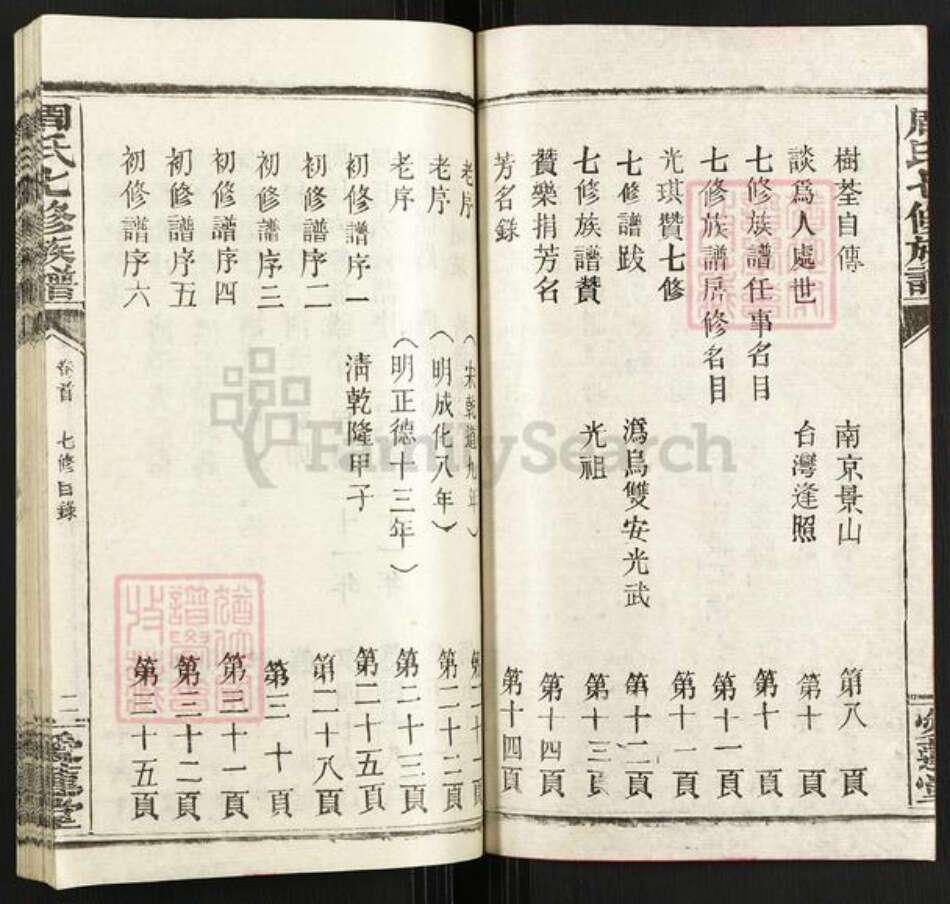 周氏七修族譜
樹荃自傳 南京景山 第八頁
談爲人處世 台灣逢照 第十頁
七修族譜任事名目 第十頁
七修族譜居修名目 第十一頁
光琪贊七修 第十一頁
七修譜跋 潙烏雙安光武 第十二頁
七修族譜贊 光祖 第十三頁
贊樂捐芳名 第十四頁
芳名錄 第十四頁
老序 (宋乾道九年) 第二十一頁
老序 (明成化八年) 第二十二頁
老序 (明正德十三年) 第二十三頁
初修譜序一 淸乾隆甲子 第二十五頁
初修譜序二 第二十八頁
初修譜序三 第三十頁
初修譜序四 第三十一頁
初修譜序五 第三十二頁
初修譜序六 第三十五頁
周氏七修族譜
卷首 七修目錄
二
愛蓮堂
FamilySearch